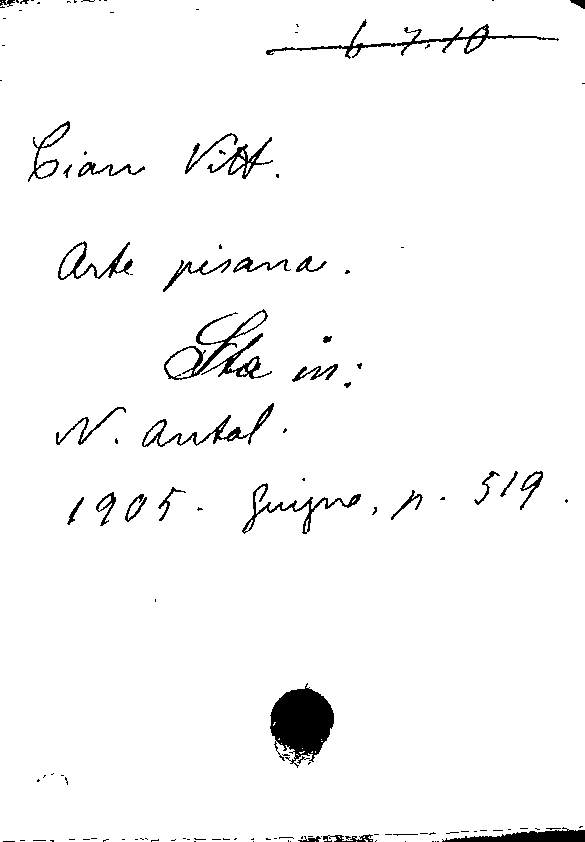 6 7.10
Cian Vitt.
Arte pisana.
Sta in:
N. Antol.
1905. Giugno, p. 519.